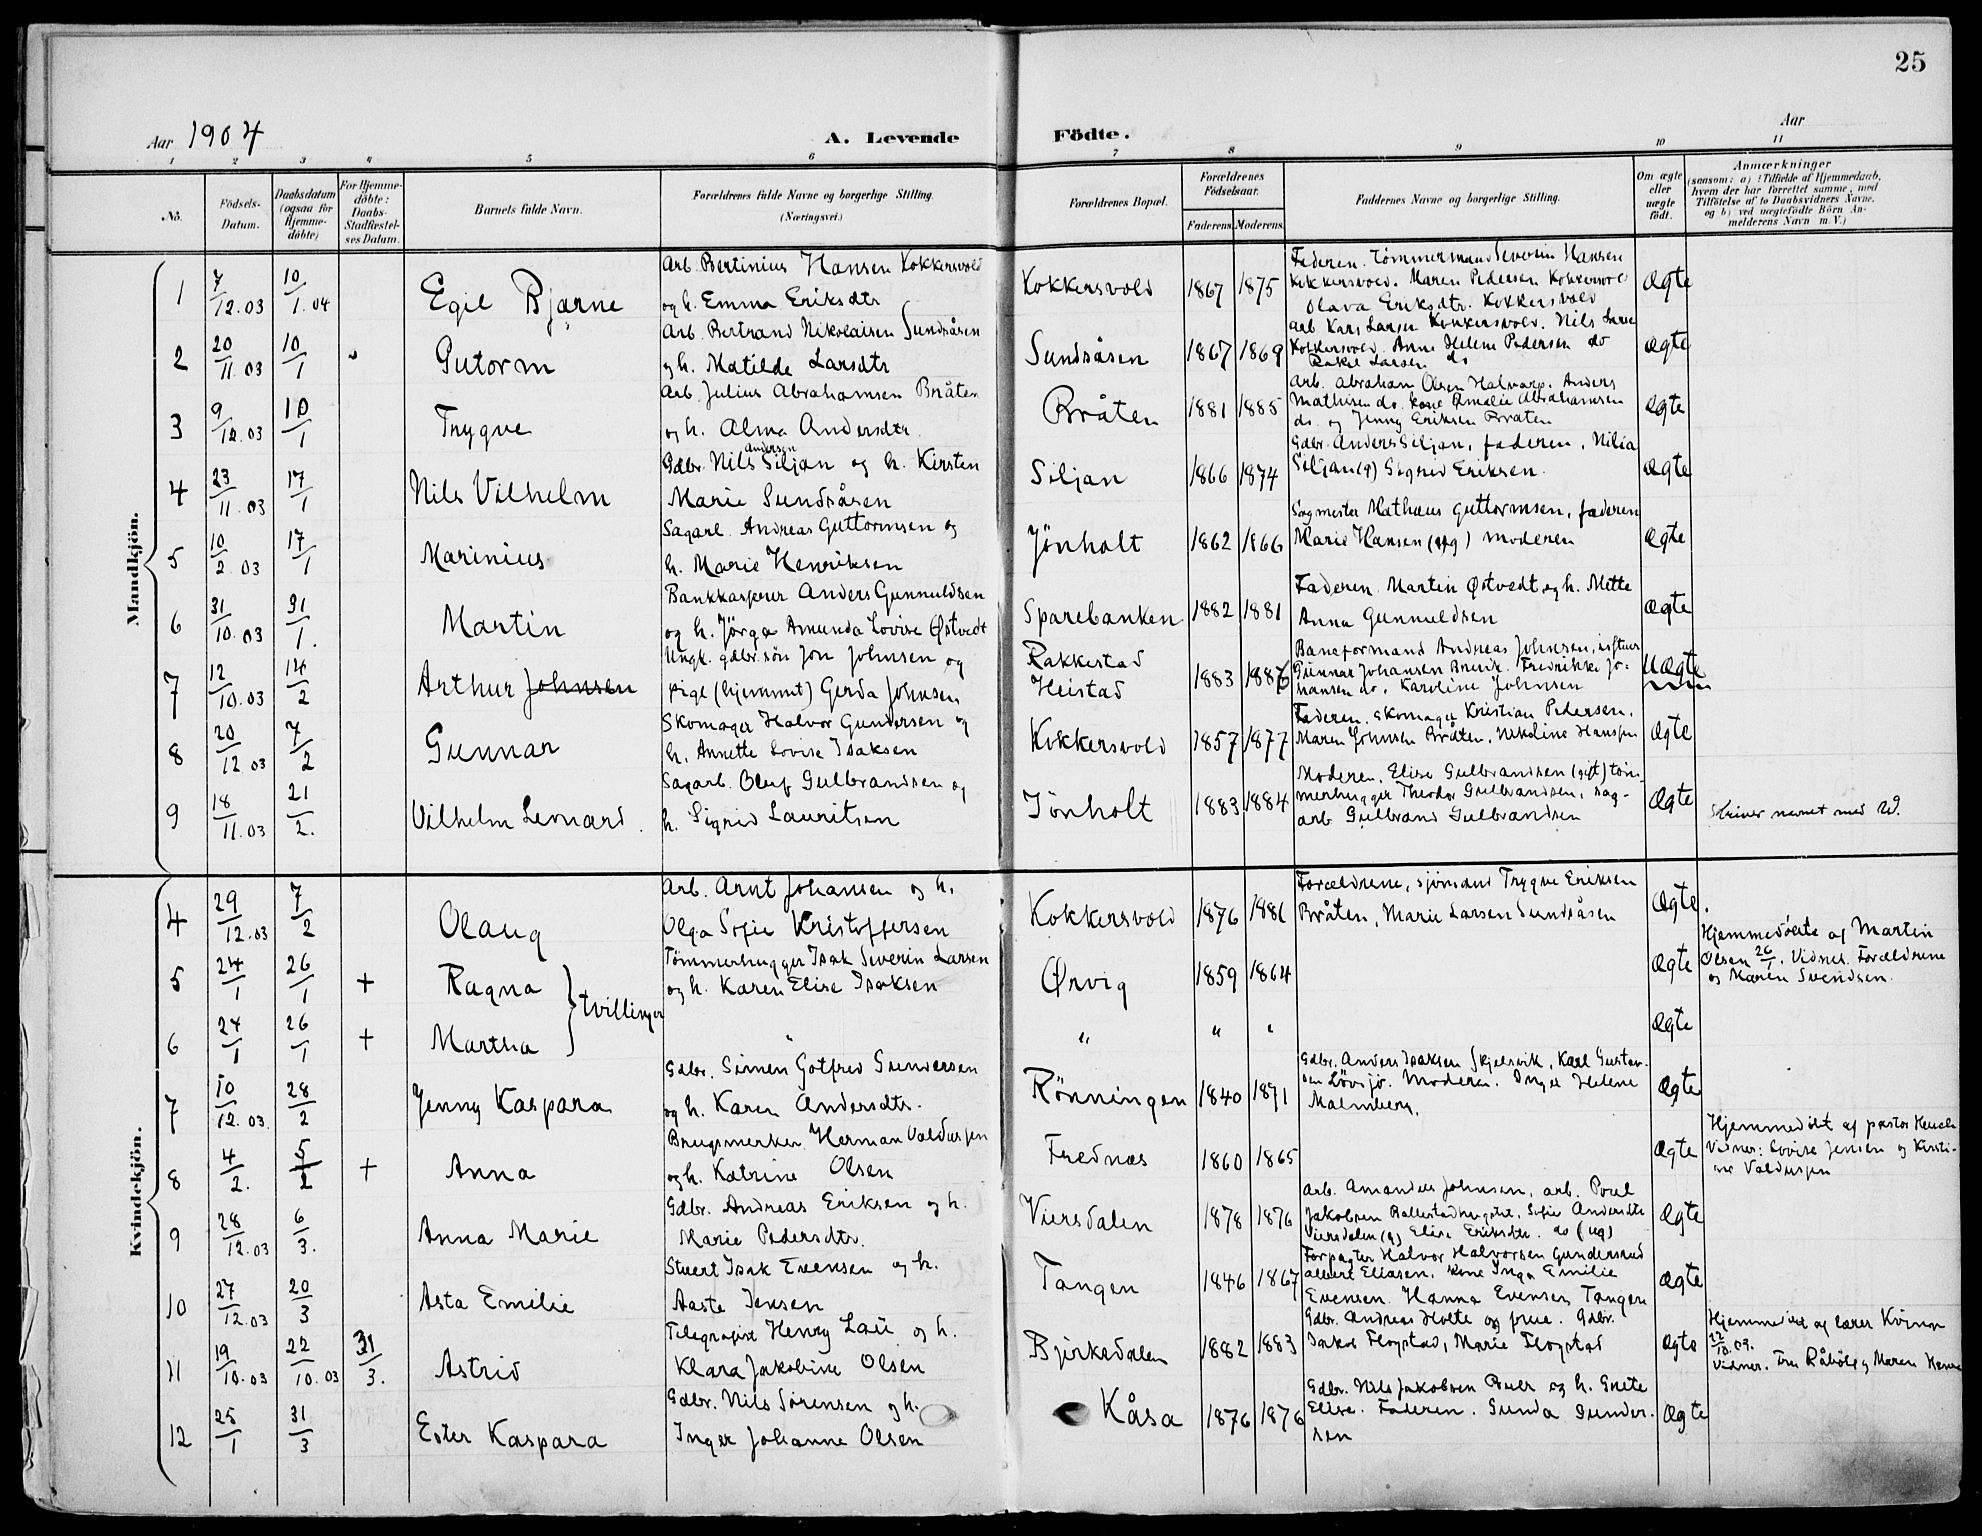 25
Aar 1904
A. Levende Födte.
Aar
1 2 3 4 5 6 7 8 9 10 11
No.
Födsels-Datum.
Daabsdatum (ogsaa for Hjemme-döbte)
For Hjemme-döbte: Daabs-Stadfæstel-ses Datum.
Barnets fulde Navn.
Forældrenes fulde Navne og borgerlige Stilling.
(Næringsvei.)
Forældrenes Bopæl.
Forældrenes Födselsaar.
Faderens. Moderens.
Faddernes Navne og borgerlige Stilling.
Om ægte eller uægte födt.
Anmærkninger
(saasom: a) i Tilfælde af Hjemmedaab,
hvem der har forrettet samme, med
Tilföielse af to Daabsvidners Navne,
og b) ved uægtefödte Börn An-
melderens Navn m. V.)
Mandkjön.
1 7/12.03 10/1.04 Egil Bjarne
Arb. Bertinius Hansen Kokkersvold
og h. Emma Eriksdtr
Kokkersvold 1867 1875
Faderen. Tømmermand Severin Hansen
Kokkersvold. Maren Pedersen Kokkersvold
Olava Eriksdtr. Kokkersvold
Ægte
2 20/11.03 10/1 Gutorm
Arb. Bertrand Nikolaisen Sundsåsen
og h. Matilde Larsdtr
Sundsåsen 1867 1869
Arb. Kars Larsen Kokkersvold. Nils Larsen
Kokkersvold. Anne Helene Pedersen do
Rakel Larsen do
Ægte
3 9/12.03 10/1 Trygve
Arb. Julius Abrahamsen Bråten
og h. Alma Andersdtr.
Bråten 1881 1885
Arb. Abraham Olsen Anders
Mathisen do. kone Amalie Abrahamsen
do. og Jenny Eriksen Bråten
Ægte
4 23/11.03 17/1 Nils Vilhelm
Gdbr. Nils Andersen Siljan og h. Kirsten
Marie Sundsåsen
Siljan 1866 1874
Gdbr. Anders Siljan, faderen, Nilia
Siljan (g) Sigrid Eriksen.
Ægte
5 10/2.03 17/1 Marinius
Sagarb. Andreas Guttormsen og
h. Marie Henriksen
Jönholt 1862 1866
Sagmester Mathæus Guttormsen, faderen
Marie Hansen moderen
Ægte
6 31/10.03 31/1. Martin
Bankkasserer Anders Gunnuldsen
og h. Jörga Amunda Lovise Østvedt
Sparebanken 1882 1881
Faderen. Martin Østvedt og h. Mette
Anna Gunnuldsen
Ægte
7 12/10.03 14/2 Arthur Johnsen
Ungk. gdbr.søn Jon Johnsen og
pige (hjemmt) Gerda Johnsen
Rakkestad
Heistad 1883 1886
Baneformand Andreas Johnsen,
Gunnar Johansen Brevik. Fredrikke Jo-
hansen do. Karoline Johnsen
Uægte
8 20/12.03 7/2 Gunnar
Skomager Halvor Gundersen og
h. Annette Lovise Isaksen
Kokkersvold 1857 1877
Faderen. Skomager Kristian Pedersen.
Maren Johnsen Bråten. Nikoline Hanssen
Ægte
9 18/11.03 21/2. Vilhelm Lernard.
Sagarb. Oluf Gulbrandsen og
h. Sigrid Lauritsen
Jönholt 1883 1884
Moderen. Elise Gulbrandsen (gift) tøm-
merhugger Theodor Gulbrandsen, sag-
arb. Gulbrand Gulbrandsen
Ægte
skriver navnet med W.
Kvindekjön.
4 29/12.03 7/2 Olaug
Arb. Arnt Johansen og h.
Olga Sofie Kristoffersen
Kokkersvold 1876 1881
Forældrene, sjømand Trygve Eriksen
Bråten, Marie Larsen Sundsåsen
Ægte.
5 24/1 26/1 + Ragna } tvillinger
Tömmerhugger Isak Severin Larsen
og h. Karen Elise Isaksen
Ørvig 1859 1864
Ægte
Hjemmedøbte af Martin
Olsen 26/1. Vidner. Forældrene
og Maren Svendsen.
6 24/1 26/1 + Martha
" " " "
Ægte
7 10/12.03. 28/2 Jenny Kaspara
Gdbr. Simen Gotfred Gundersen
og h. Karen Andersdtr.
Rönningen 1840 1871
Gdbr. Anders Isaksen Skjelsvik, Karl Gustav-
sen Lövsjö. Moderen. Inger Helene
Malmberg.
Ægte
8 4/2. 5/2 + Anna
Brugsmerker Herman Valdussen
og h. Katrine Olsen
Frednæs 1860 1865
Ægte
Hjemmedöbt af pastor Heuch
Vidner: Lovise Jensen og Kirsti-
ne Valdussen
9 28/12.03 6/3. Anna Marie
Gdbr. Andreas Eriksen og h.
Marie Pedersdtr.
Viersdalen 1878 1876
Arb. Amandus Johnsen, arb. Poul
Jakobsen Sofie Andersdtr
Viersdalen (g) Elise Eriksdtr. do (ug)
Ægte
10 27/12.03 20/3 Asta Emilie
Stuert Isak Evensen og h.
Aaste Jensen
Tangen 1846 1867
Forpagter Halvor Halvorsen Gunderstad
Albert Eliasen. kone Inga Emilie
Evensen. Hanna Evensen Tangen
Ægte
11 19/10.03 22/10.03 31/3. Astrid
Telegrafist Henry Lau og h.
Klara Jakobine Olsen
Bjerkedalen 1882 1883
Gdbr. Andreas Holte og frue. Gdbr.
Jakob Flogstad, Marie Flogstad
Ægte
Hjemmedöbt af lærer
22/10.03.
Vidner. Fru og Maren
12 25/1 31/3 Ester Kaspara
Gdbr. Nils Sörensen og h.
Inger Johanne Olsen
Kåsa 1876 1876
Gdbr. Nils Jakobsen og h. Grete
Elise. Faderen. Gunda Gunder-
sen
Ægte